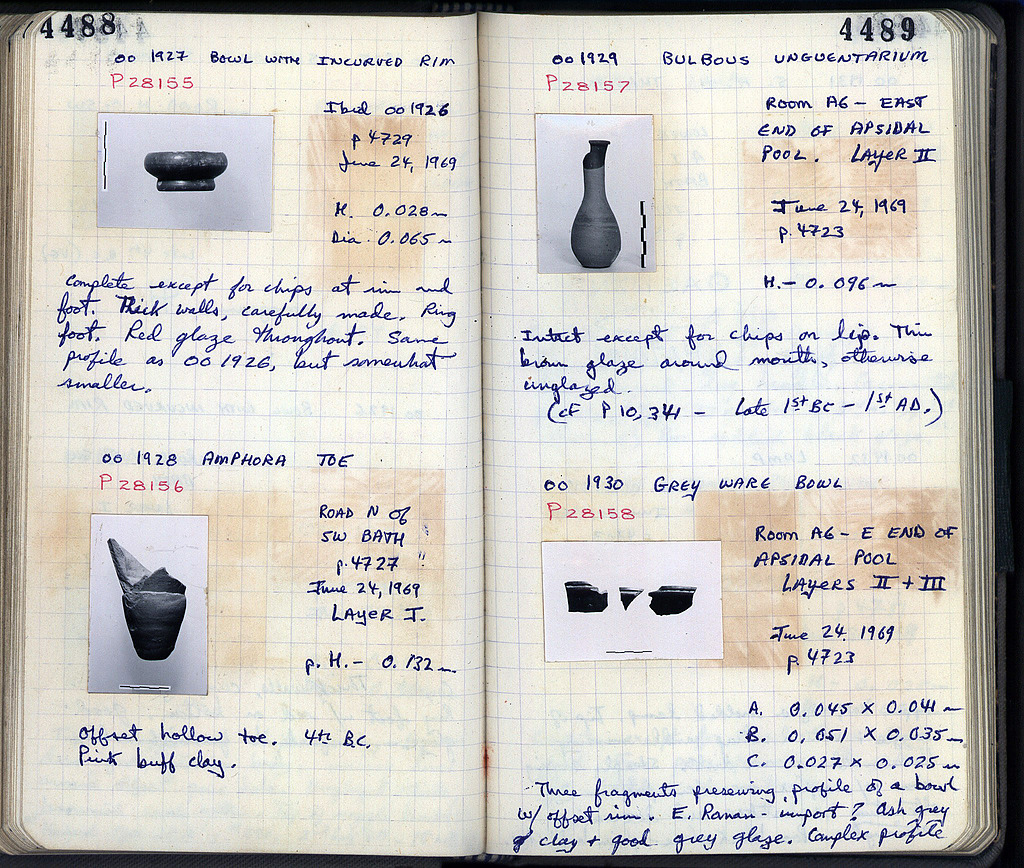 4488
OO 1927 BOWL WITH INCURVED RIM
P28155
Ibid OO 1926
p 4729
June 24, 1969
H. 0.028 m
Dia. 0.065 m
Complete except for chips at rim and
foot. Thick walls, carefully made. Ring
foot. Red glaze throughout. Same
profile as OO 1926, but somewhat
smaller.
OO 1928 AMPHORA TOE
P28156
ROAD N of
SW BATH
p. 4727
June 24, 1969
LAYER I.
p. H. - 0.132 m
Offset hollow toe. 4th B.C.
Pink buff clay.
4489
OO 1929 BULBOUS UNGUENTARIUM
P28157
ROOM A6 - EAST
END OF APSIDAL
POOL. LAYER II
June 24, 1969
p. 4723
H. - 0.096 m
Intact except for chips on lip. Thin
brown glaze around mouth, otherwise
unglazed.
(cf P 10,341 - Late 1st BC - 1st AD.)
OO 1930 GREY WARE BOWL
P28158
ROOM A6 - E END OF
APSIDAL POOL
LAYERS II + III
June 24. 1969
p. 4723
A. 0.045 X 0.041 m
B. 0.051 X 0.035 m
C. 0.027 X 0.025 m
Three fragments preserving profile of a bowl
w/ offset rim. E. Roman - import? Ash grey
clay + good grey glaze. Complex profile